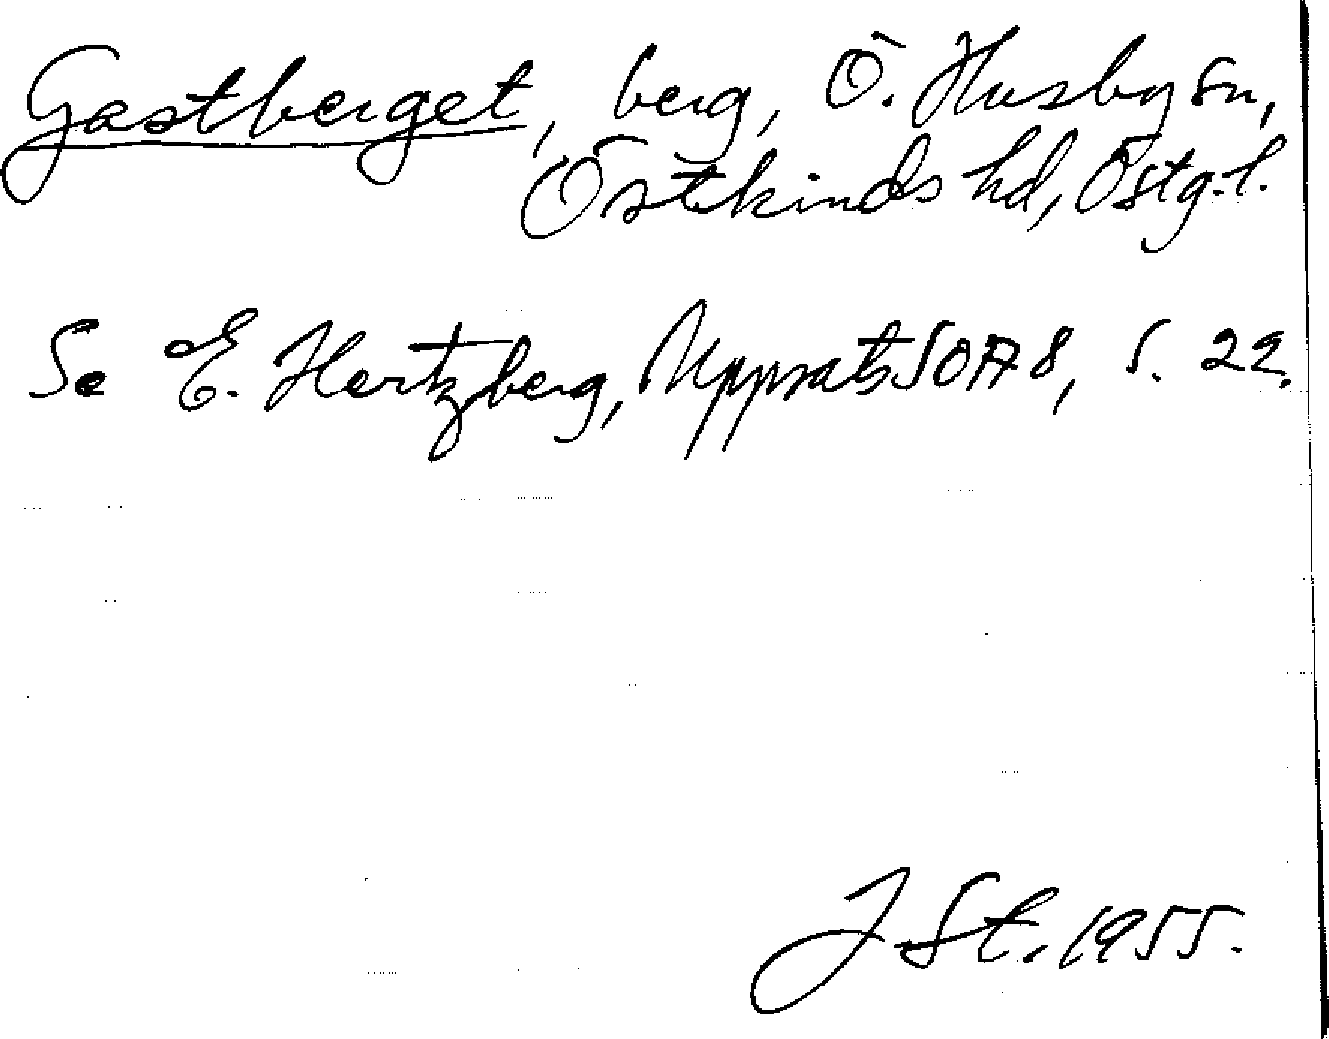 Gastberget, berg, Ö. Husby sn,
Östkinds hd, Östg.l.
Se E. Hertzberg, Uppsats SOA 8, s. 22.
J St. 1955.